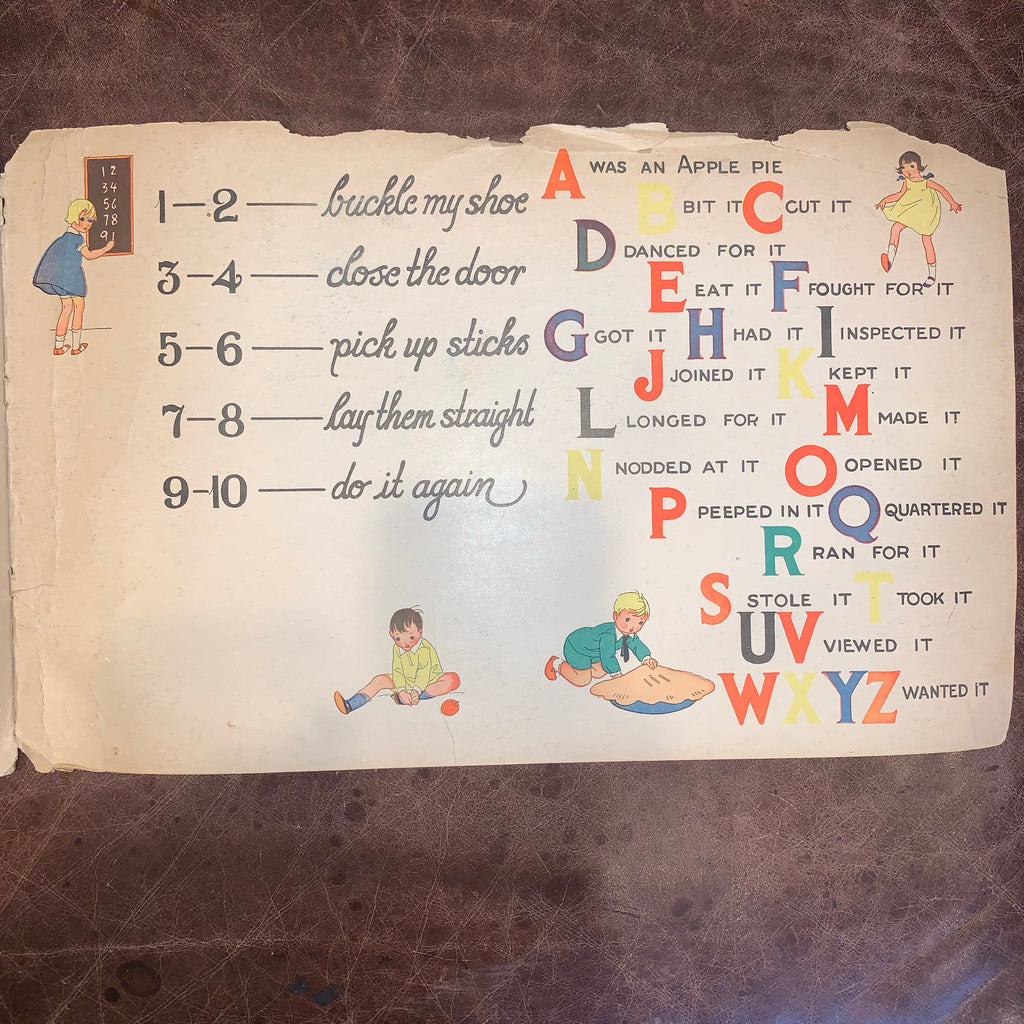 1 2
3 4
5 6
7 8
9 1
1-2 — buckle my shoe
3-4 — close the door
5-6 — pick up sticks
7-8 — lay them straight
9-10 — do it again
A WAS AN APPLE PIE
B BIT IT C CUT IT
D DANCED FOR IT
E EAT IT F FOUGHT FOR IT
G GOT IT H HAD IT I INSPECTED IT
J JOINED IT K KEPT IT
L LONGED FOR IT M MADE IT
N NODDED AT IT O OPENED IT
P PEEPED IN IT Q QUARTERED IT
R RAN FOR IT
S STOLE IT T TOOK IT
U V VIEWED IT
W X Y Z WANTED IT